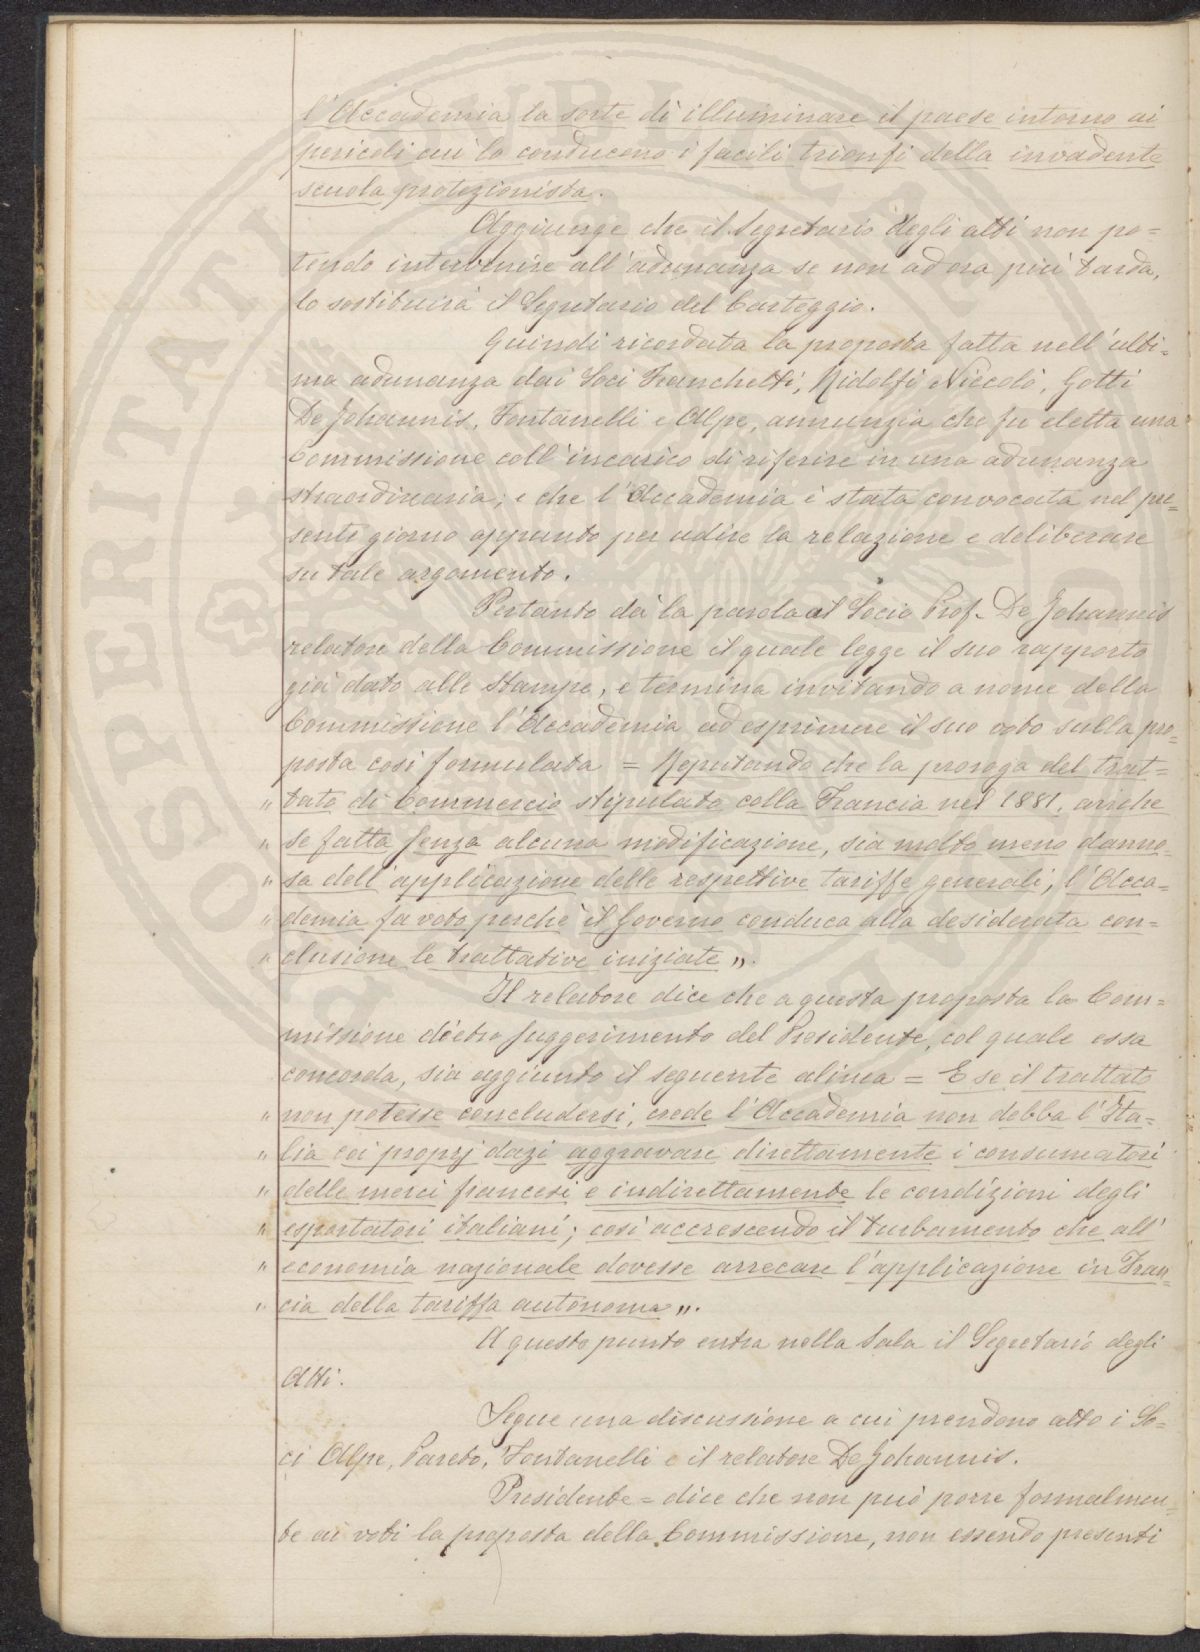 l'Accademia la sorte di illuminare il paese intorno ai
pericoli cui lo conducono i facili trionfi della invadente
scuola protezionista.
Aggiunge che il Segretario degli atti non po=
tendo intervenire all'adunanza se non ad ora più tarda,
lo sostituirà il Segretario del Carteggio.
Quindi ricordata la proposta fatta nell'ulti=
ma adunanza dai Soci Franchetti, Ridolfi Niccolò, Gotti
De Johannis, Fontanelli e Alpe, annunzia che fu eletta una
Commissione coll'incarico di riferire in una adunanza
straordinaria; e che l'Accademia è stata convocata nel pre=
sente giorno appunto per udire la relazione e deliberare
su tale argomento.
Pertanto dà la parola al Socio Prof. De Johannis
relatore della Commissione il quale legge il suo rapporto
già dato alle stampe, e termina invitando a nome della
Commissione l'Accademia ad esprimere il suo voto sulla pro=
posta così formulata = Reputando che la proroga del trat=
" tato di Commercio stipulato colla Francia nel 1881, anche
" se fatta senza alcuna modificazione, sia molto meno danno=
" sa dell'applicazione delle respettive tariffe generali, l'Acca=
" demia fa voto perchè il Governo conduca alla desiderata con=
" clusione le trattative iniziate ".
Il relatore dice che a questa proposta la Com=
missione dietro suggerimento del Presidente, col quale essa
concorda, sia aggiunto il seguente alinea = E se il trattato
" non potesse concludersi, crede l'Accademia non debba l'Ita=
" lia coi proprj dazi aggravare direttamente i consumatori
" delle merci francesi e indirettamente le condizioni degli
" esportatori italiani; così accrescendo il turbamento che all'
" economia nazionale dovesse arrecare l'applicazione in Fran=
" cia della tariffa autonoma ".
A questo punto entra nella Sala il Segretario degli
Atti.
Segue una discussione a cui prendono atto i So=
ci Alpe, Pareto, Fontanelli e il relatore De Johannis.
Presidente = dice che non può porre formalmen=
te ai voti la proposta della Commissione, non essendo presenti
SPERITATI PUBLICAE